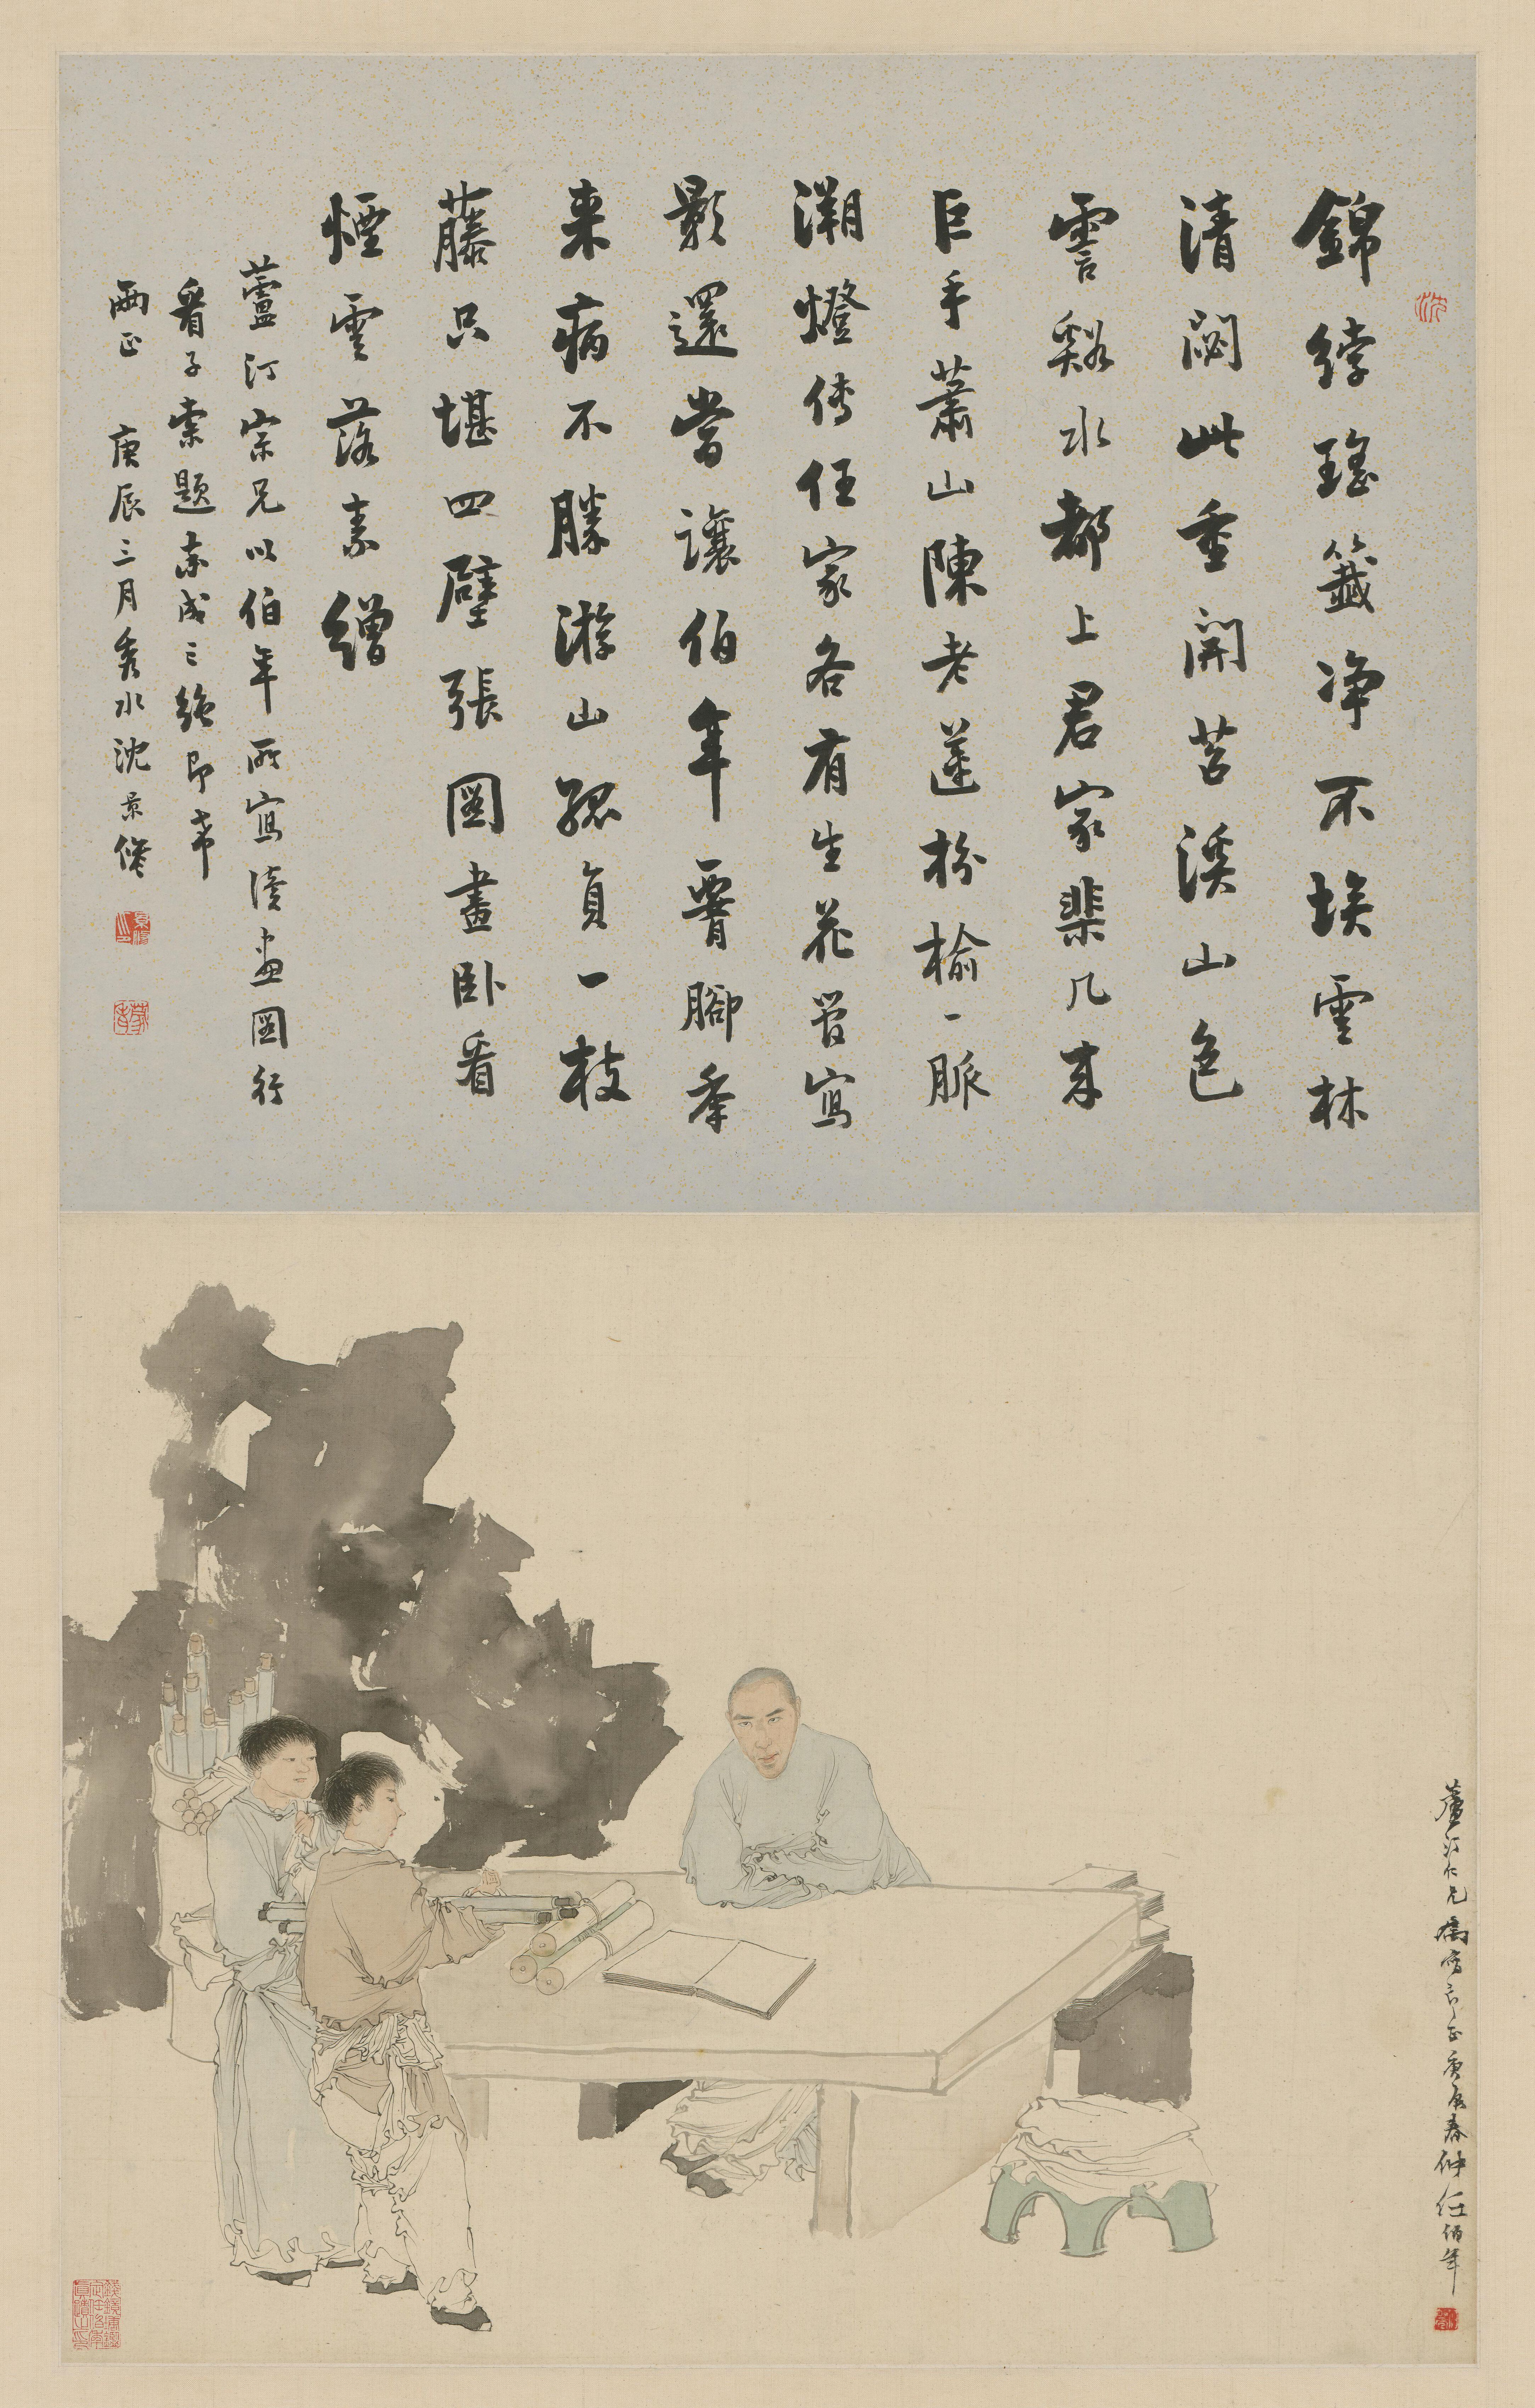 沈
錦綍瑤籤净不埃雲林
清閟此重開苕溪山色
霅谿水都上君家棐几來
巨手蕭山陳老蓮枌榆一脈
溯燈傳任家各有生花管寫
影還當讓伯年腰腳年
來病不勝游山孤負一枝
藤只堪四壁張圖畫臥看
煙雲落素繒
蘆汀宗兄以伯年所寫讀畫圖行
看子索題率成三絕即希
兩正 庚辰三月秀水沈景修
蘆汀仁兄 正庚辰春仲任伯年
錢鏡塘鑑定任伯年真蹟之印